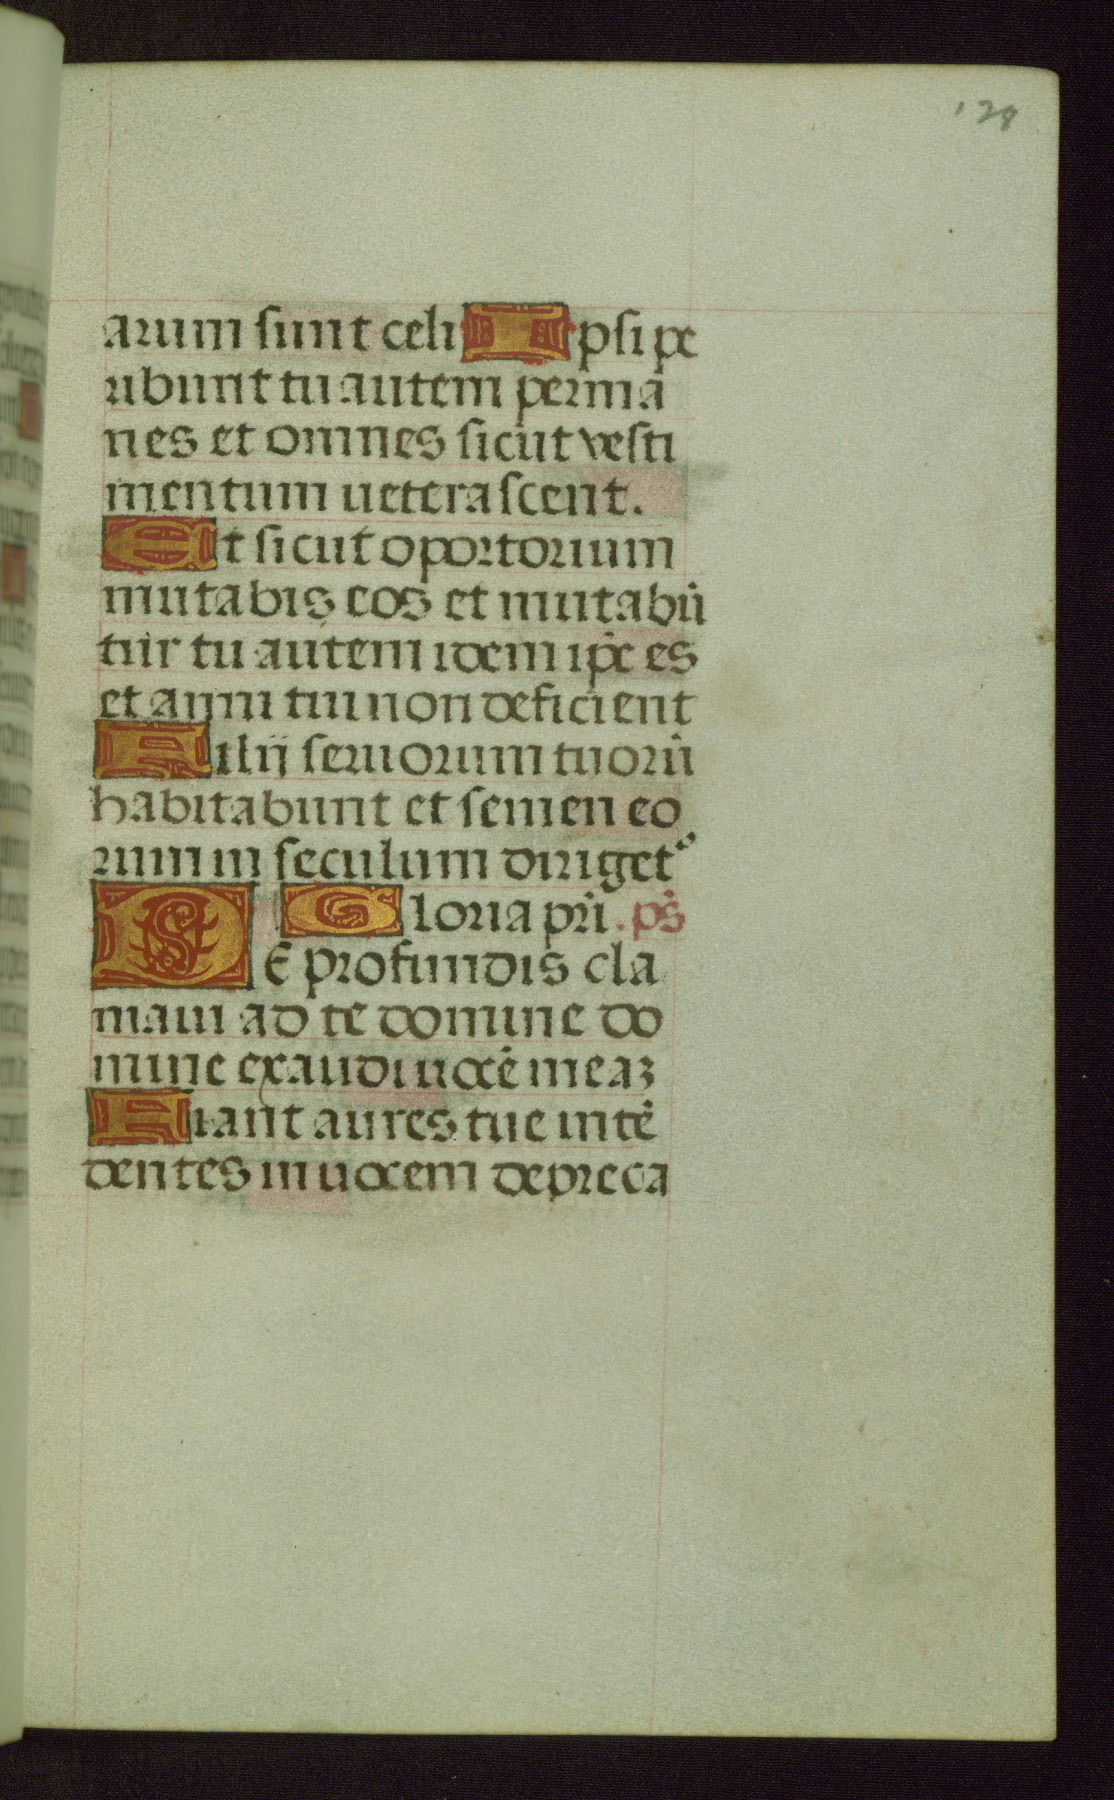 128
arum sunt celi Ipsi pe
ribunt tu autem permã
nes et omnes sicut vesti
mentum ueterascent.
Et sicut oportorium
mutabis eos et mutabũ
tur tu autem idem ip̃e es
et anni tui non deficient
Filij seruorum tuorũ
habitabunt et semen eo
rum in seculum diriget᷒
Gloria pr̃i. ps̃
DE profundis cla
maui ad te domine do
mine exaudi uocẽ meaꝫ
Fiant aures tue intẽ
dentes in uocem depreca